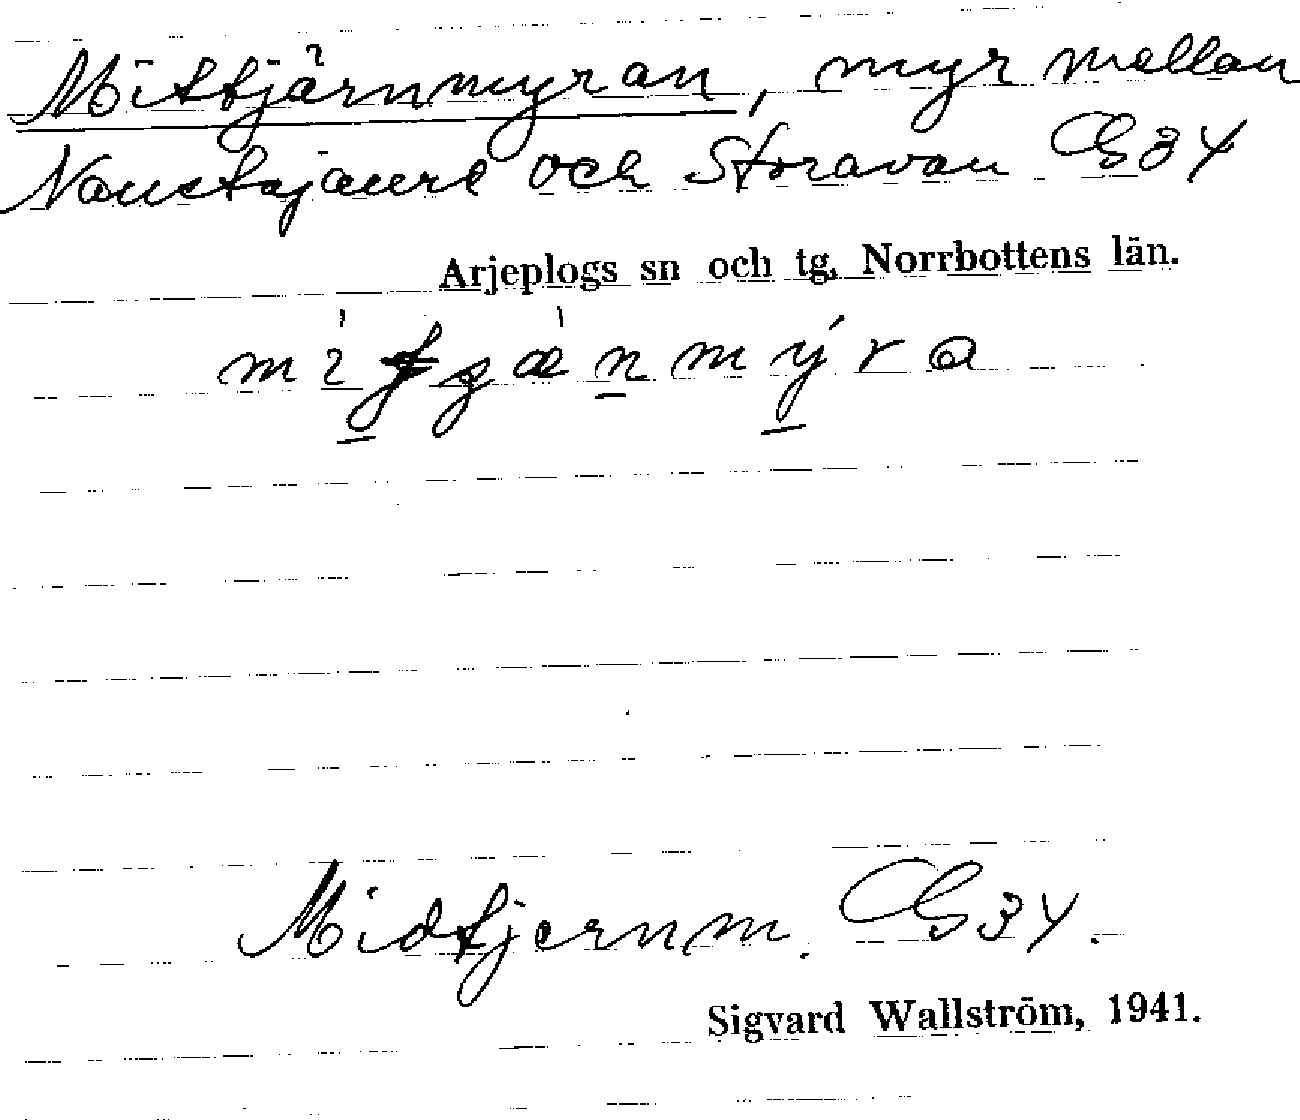 Mittjärnmyran, myr mellan
Naustajaure och Storavan GS 34
Arjeplogs sn och tg, Norrbottens län.
Midtjernm. GS 34.
Sigvard Wallström, 1941.